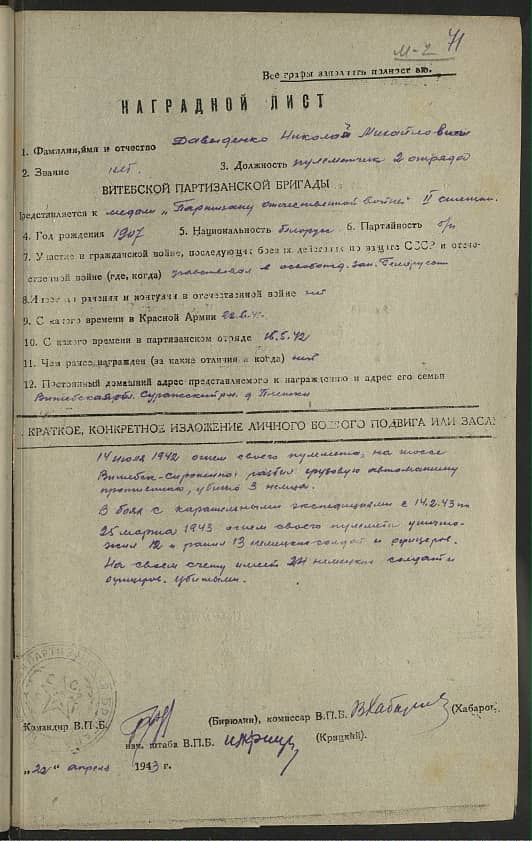 М-2 71
Все графы заполнять полностью.
НАГРАДНОЙ ЛИСТ
1. Фамилия, имя и отчество Давыденко Николай Михайлович
2. Звание нет. 3. Должность пулеметчик 2 отряда
ВИТЕБСКОЙ ПАРТИЗАНСКОЙ БРИГАДЫ
Представляется к медали „Партизану отечественной войны" II степени.
4. Год рождения 1907 5. Национальность белорус 6. Партийность б/п
7. Участие в гражданской войне, последующих боевых действиях по защите СССР и отече-
ственной войне (где, когда) участвовал в освобожд. зап. Белоруссии
8. Имеет ли ранения и контузии в отечественной войне нет
9. С какого времени в Красной Армии
10. С какого времени в партизанском отряде 15.5.42
11. Чем ранее награжден (за какие отличия и когда) нет
12. Постоянный домашний адрес представляемого к награждению и адрес его семьи
Витебская обл. Суражский рн. д.
КРАТКОЕ, КОНКРЕТНОЕ ИЗЛОЖЕНИЕ ЛИЧНОГО БОЕВОГО ПОДВИГА ИЛИ ЗАСЛ
14 июля 1942 огнем своего пулемета, на шоссе
Витебск- разбил грузовую автомашину
противника, убито 3 немца.
В боях с карательными экспедициями с 14.2.43 по
25 марта 1943 огнем своего пулемета уничто-
жил 12 и ранил 13 немецких солдат и офицеров.
На своем счету имеет 24 немецких солдат и
офицеров. убитыми.
Командир В.П.Б. (Бирюлин), комиссар В.П.Б. (Хабаров)
нач. штаба В.П.Б. (Крицкий)
„22" апреля 1943 г.